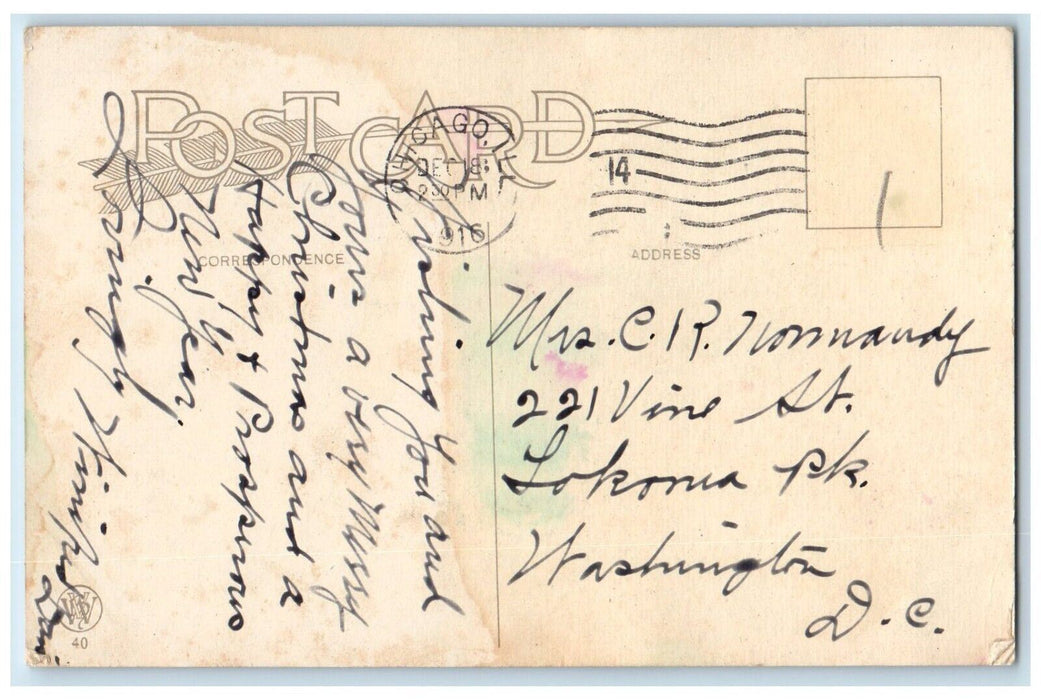 POST CARD
CHICAGO, ILL
DEC 18
2 30 PM
1916
14
CORRESPONDENCE
ADDRESS
Wishing you and
yours a very Merry
Christmas and a
Happy & Prosperous
New Year.
Mrs. C. R. Normandy
221 Vine St.
Pk.
Washington
D.C.
40